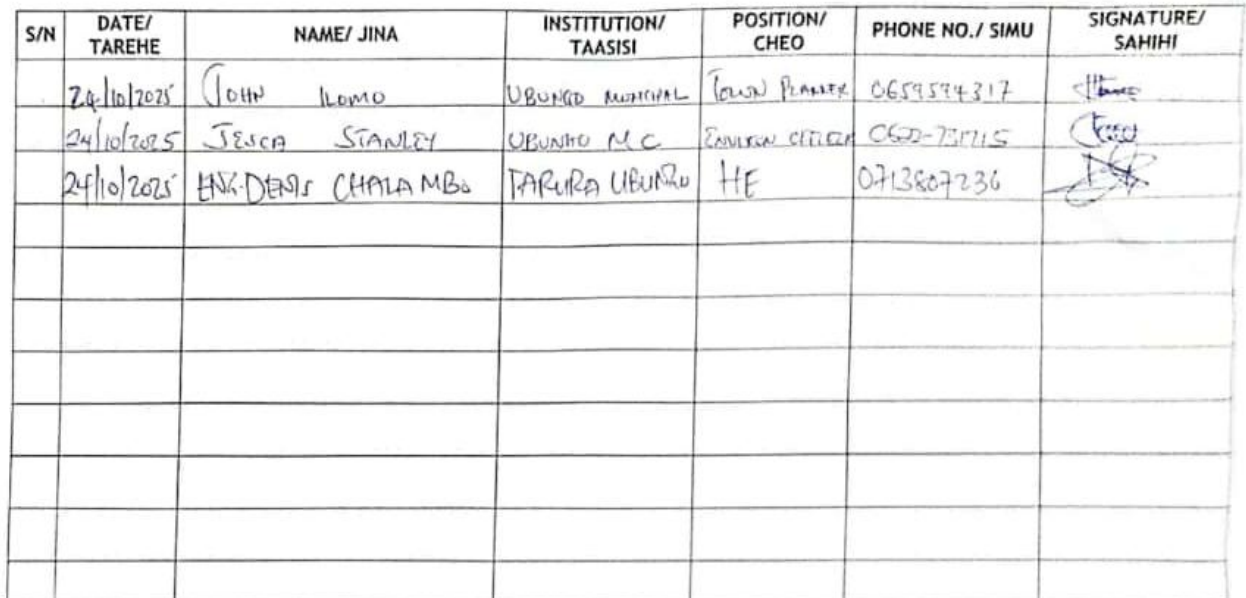 S/N DATE/ TAREHE NAME/ JINA INSTITUTION/ TAASISI POSITION/ CHEO PHONE NO./ SIMU SIGNATURE/ SAHIHI
24/10/2025 JOHN ILOMO UBUNGO MUNICIPAL TOWN PLANNER 0659594317
24/10/2025 JESCA STANLEY UBUNGO M.C
24/10/2025 ENG. DENIS CHALAMBO TARURA UBUNGO HE 0713807236